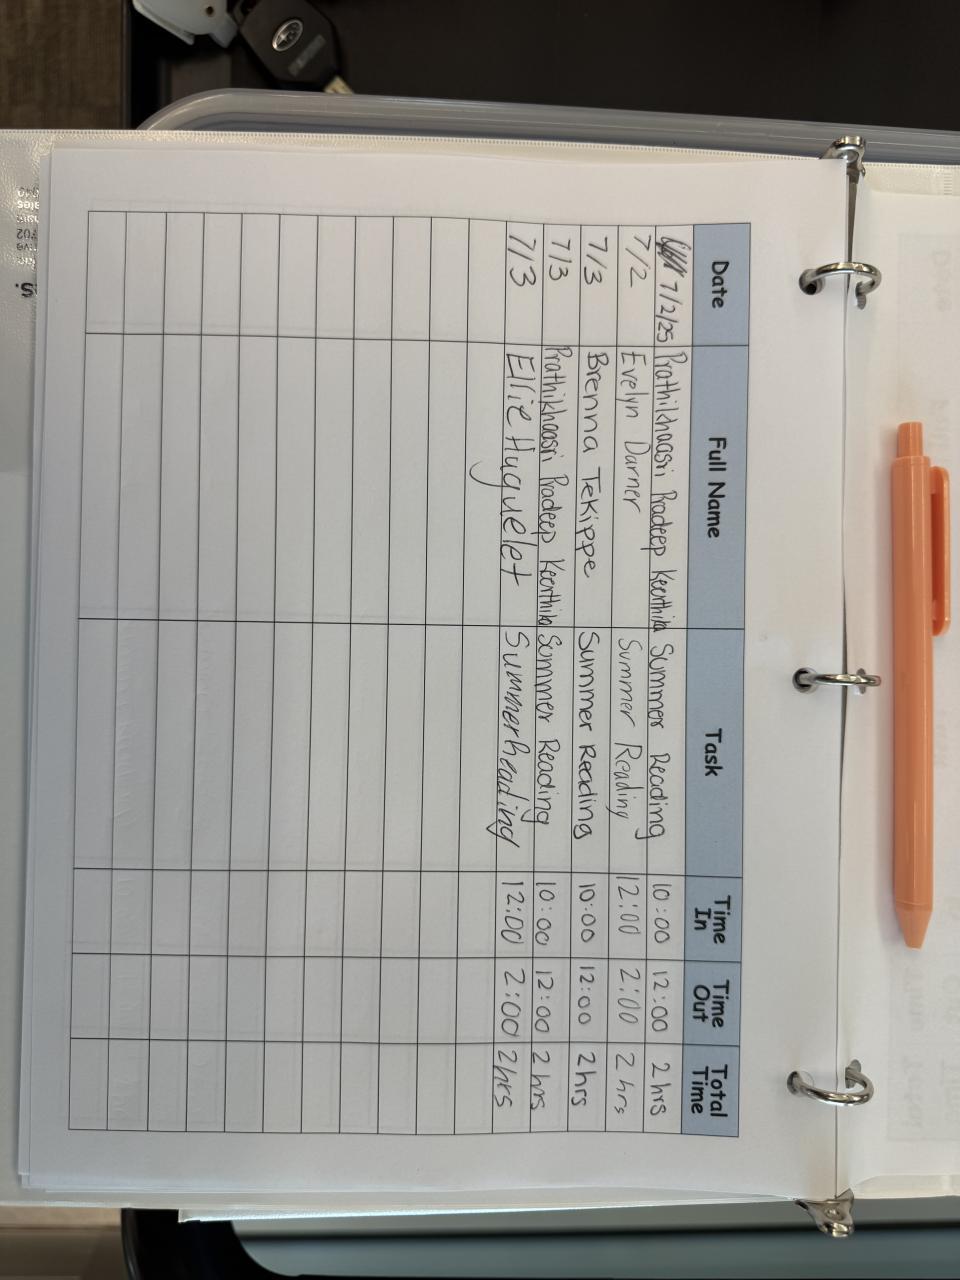 Date Full Name Task Time In Time Out Total Time
7/2/25 Prathikhaasri Pradeep Keerthika Summer Reading 10:00 12:00 2 hrs
7/2 Evelyn Darner Summer Reading 12:00 2:00 2 hrs
7/3 Brenna Tekippe Summer Reading 10:00 12:00 2 hrs
7/3 Prathikhaasri Pradeep Keerthika Summer Reading 10:00 12:00 2 hrs
7/3 Ellie Huguelet Summer Reading 12:00 2:00 2 hrs